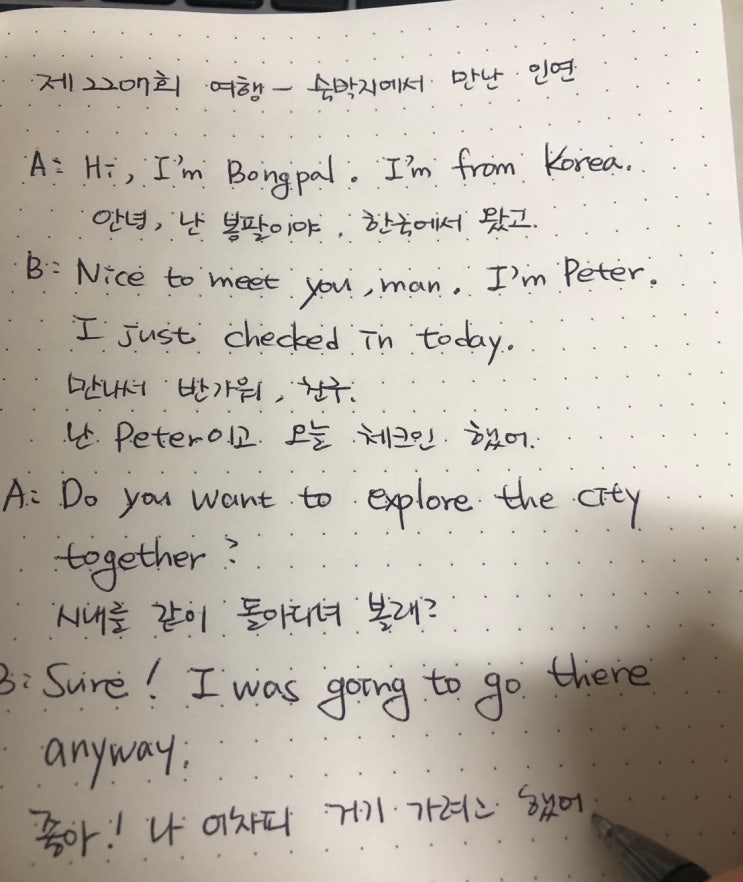 제2207회 여행 - 숙박지에서 만난 인연
A: Hi, I'm Bongpal. I'm from Korea.
안녕, 난 봉팔이야. 한국에서 왔고.
B: Nice to meet you, man. I'm Peter.
I just checked in today.
만나서 반가워, 친구.
난 Peter이고 오늘 체크인 했어.
A: Do you want to explore the city
together?
시내를 같이 돌아다녀 볼래?
B: Sure! I was going to go there
anyway.
좋아! 나 어차피 거기 가려고 했어